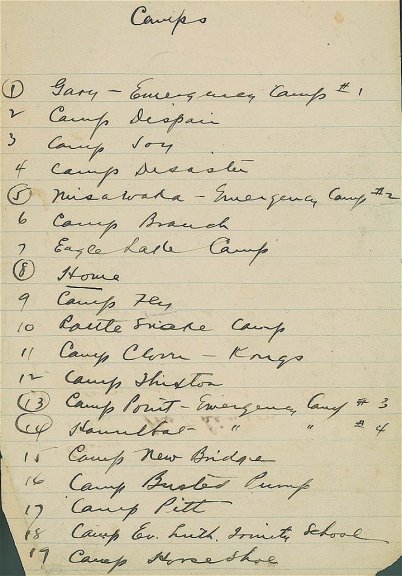 Camps
1 Gary - Emergency Camp #1
2 Camp Despair
3 Camp Joy
4 Camp Disaster
5 Misawaka - Emergency Camp #2
6 Camp Branch
7 Eagle Lake Camp
8 Home
9 Camp Fly
10 Rattle Snake Camp
11 Camp Clover - Kongs
12 Camp
13 Camp Point - Emergency Camp #3
14 Hannibal - " " #4
15 Camp New Bridge
16 Camp Busted Pump
17 Camp Pitt
18 Camp Ev. Luth. Trinity School
19 Camp Horse Shoe